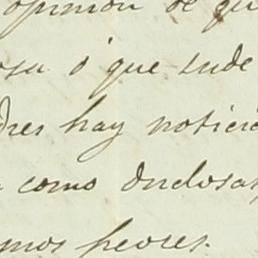 opinion de que
osa ó que sude
dres hay noticia
como dudosas,
mos peores.